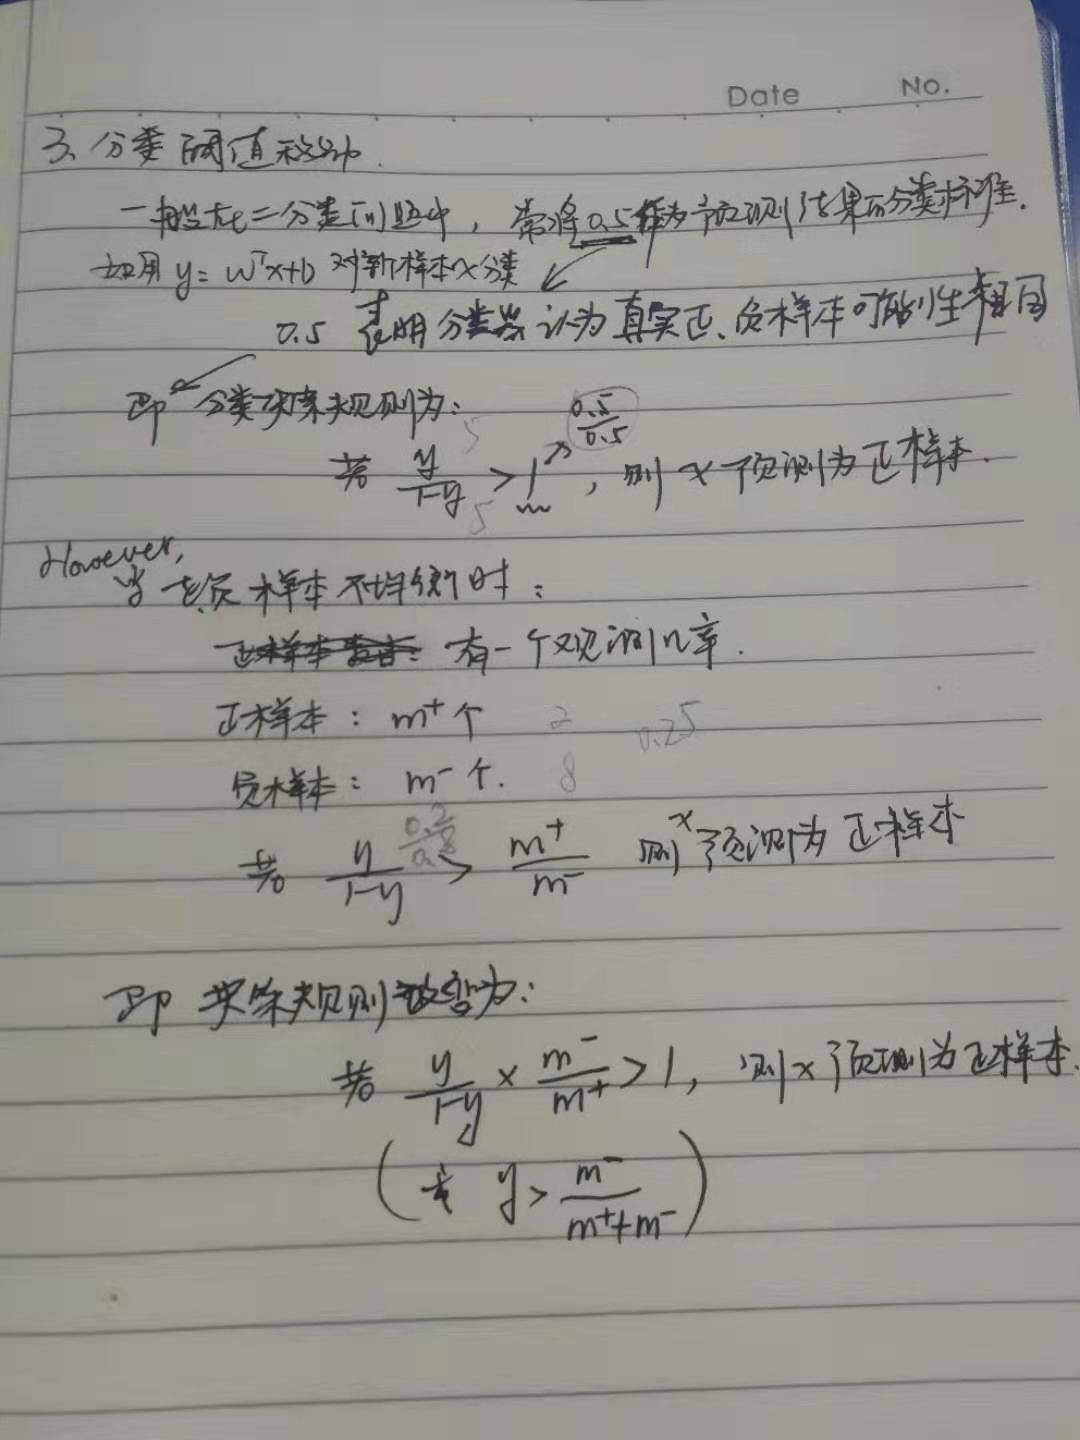 Date No.
3、分类阈值移动.
一般在二分类问题中，常将0.5作为预测结果的分类标准.
如用 y=wᵀx+b 对新样本x分类
0.5 表明分类器认为真实正、负样本可能性相同
即 分类决策规则为：
0.5/0.5
若 y/(1-y) > 1，则 x 预测为正样本.
5
5
However,
当正负样本不均衡时：
正样本 有一个观测几率.
正样本：m⁺个 2 0.25
负样本：m⁻个. 8
0.2/0.8
若 y/(1-y) > m⁺/m⁻ 则x预测为正样本
即 决策规则改变为：
若 y/(1-y) × m⁻/m⁺ > 1，则x预测为正样本.
( 若 y > m⁻/(m⁺+m⁻) )